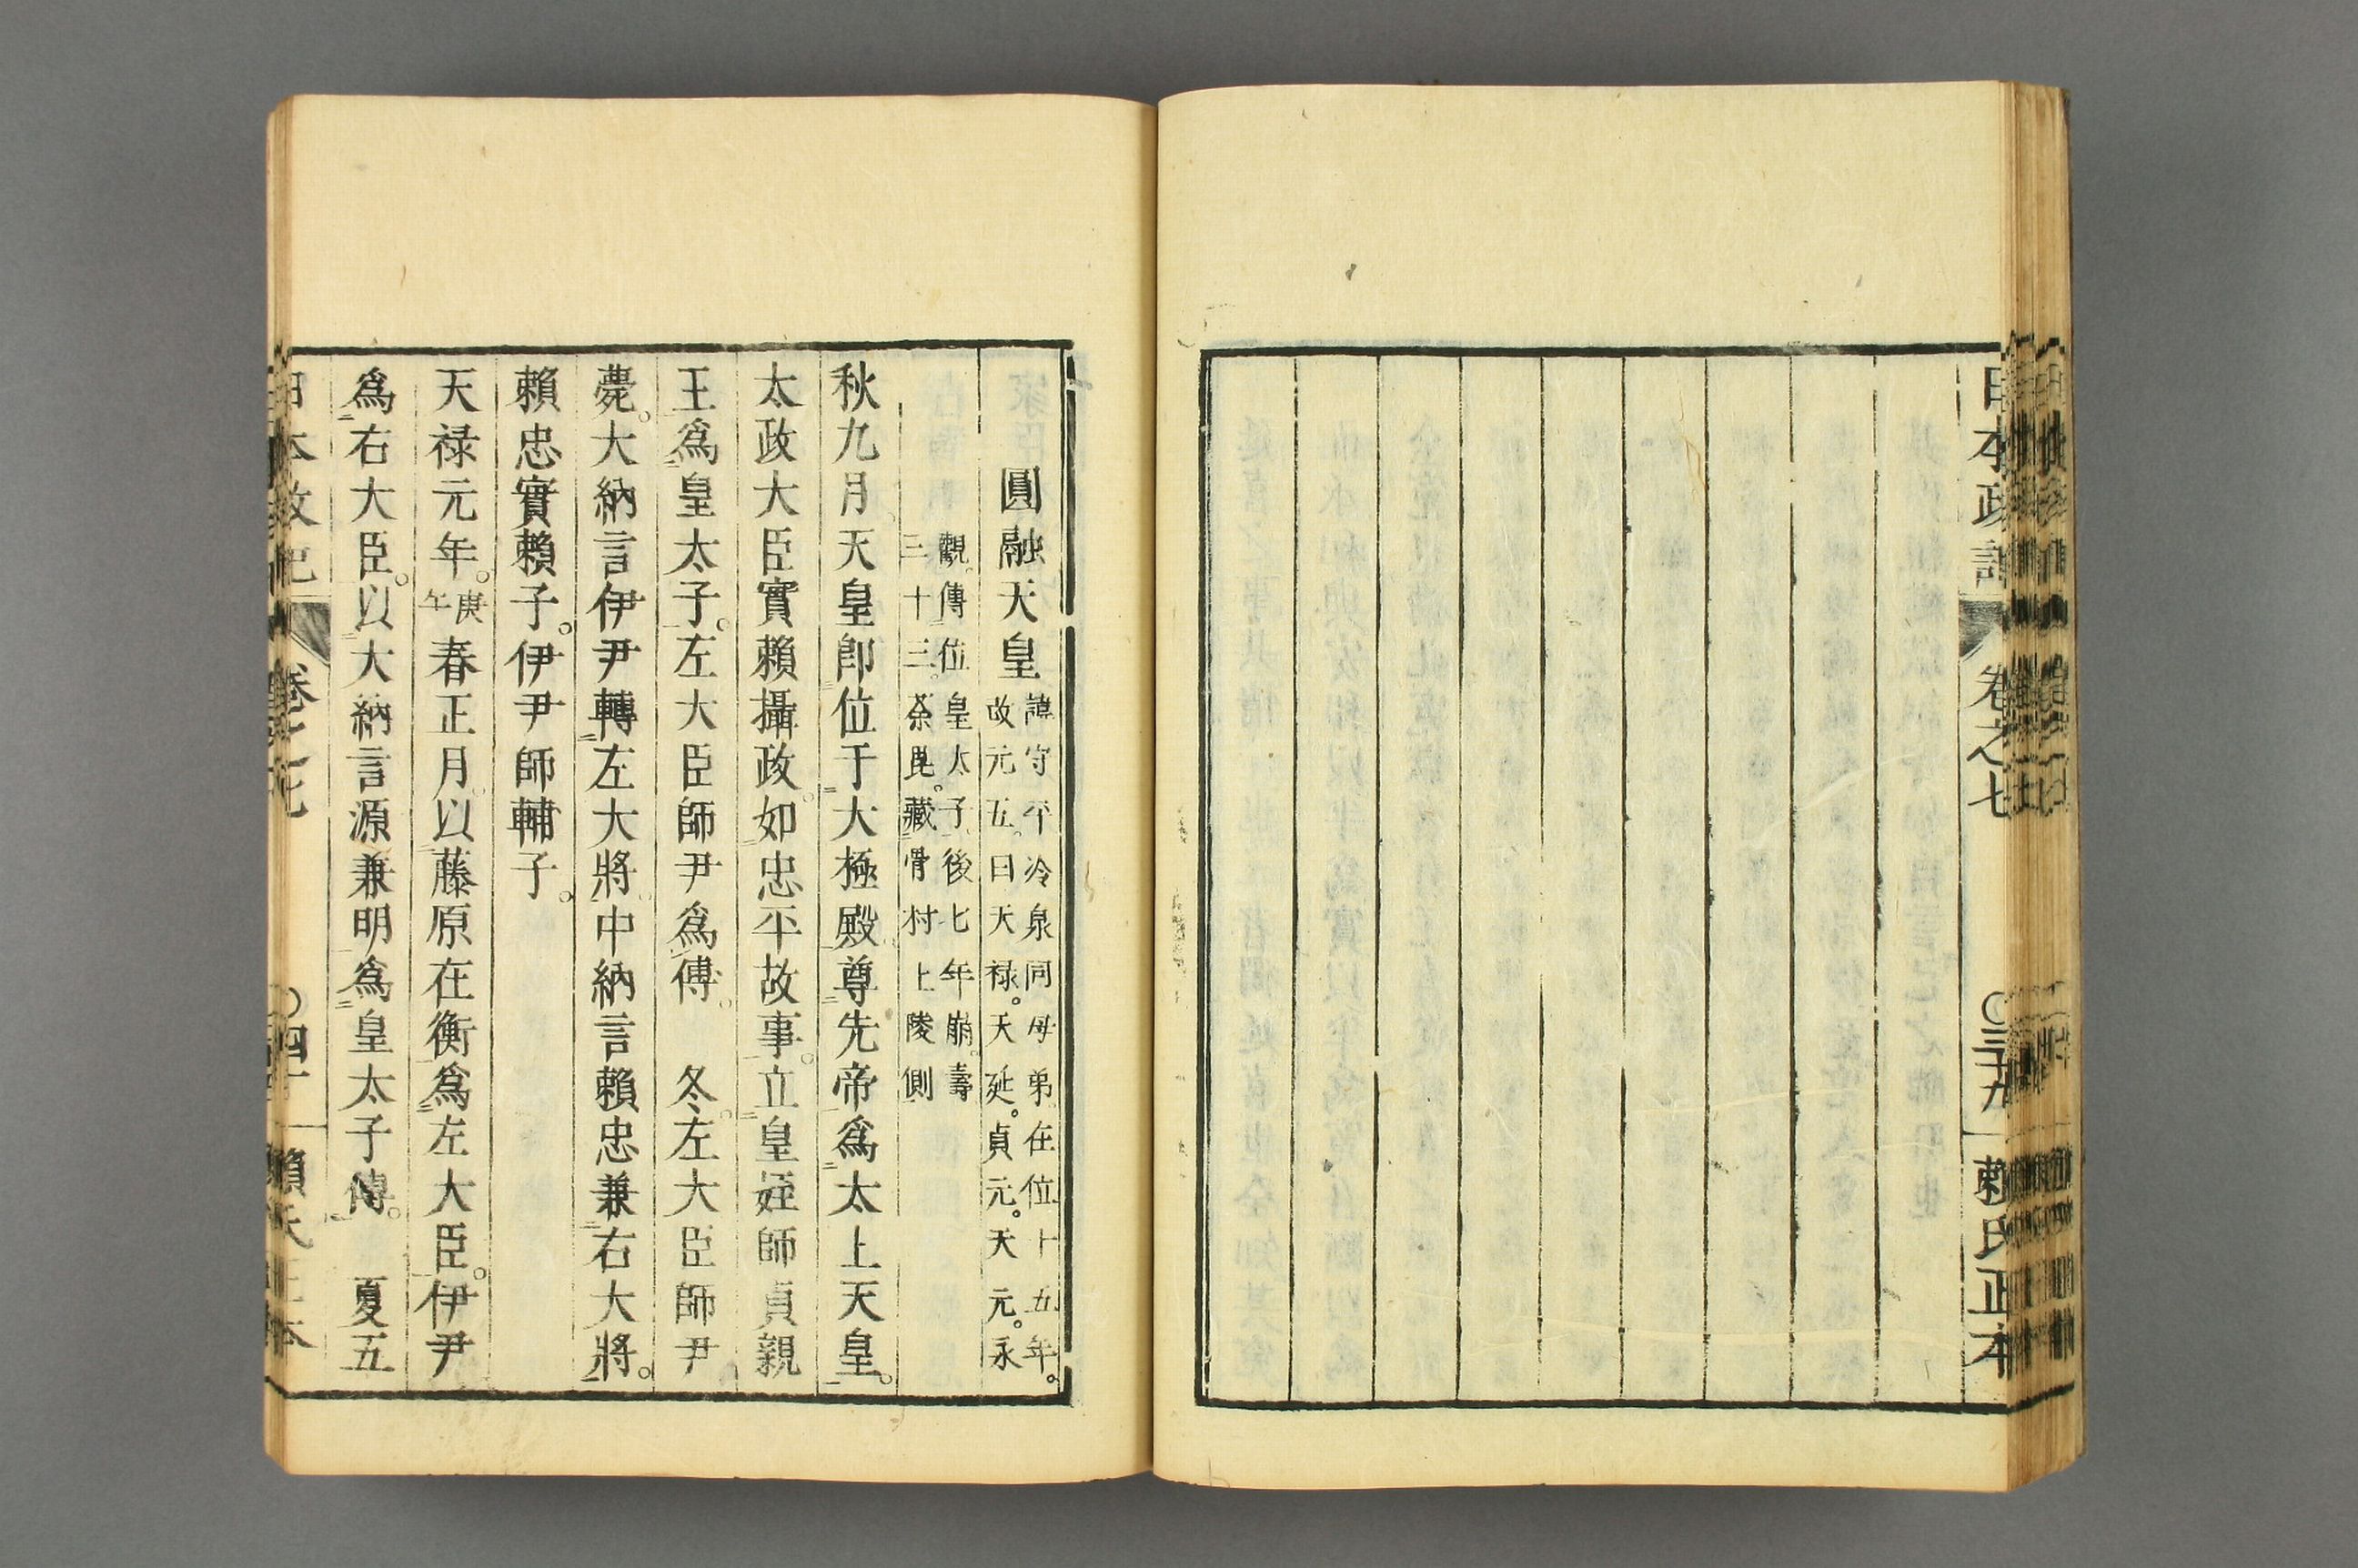 日本政記 卷之七 ○三十九 賴氏正本
圓融天皇 諱守平冷泉同母弟在位十五年。
改元五。曰天祿。天延。貞元。天元。永
觀。傳位皇太子後七年崩。壽
三十三。荼毘。藏骨村上陵側
秋九月。天皇卽位于大極殿。尊先帝爲太上天皇。
太政大臣實賴攝政。如忠平故事。立皇姪師貞親
王爲皇太子。左大臣師尹爲傅。 冬。左大臣師尹
薨。大納言伊尹轉左大將。中納言賴忠兼右大將。
賴忠實賴子。伊尹師輔子。
天祿元年。庚午春正月。以藤原在衡爲左大臣。伊尹
爲右大臣。以大納言源兼明爲皇太子傅。 夏五
日本政記 卷之七 ○四十 賴氏正本